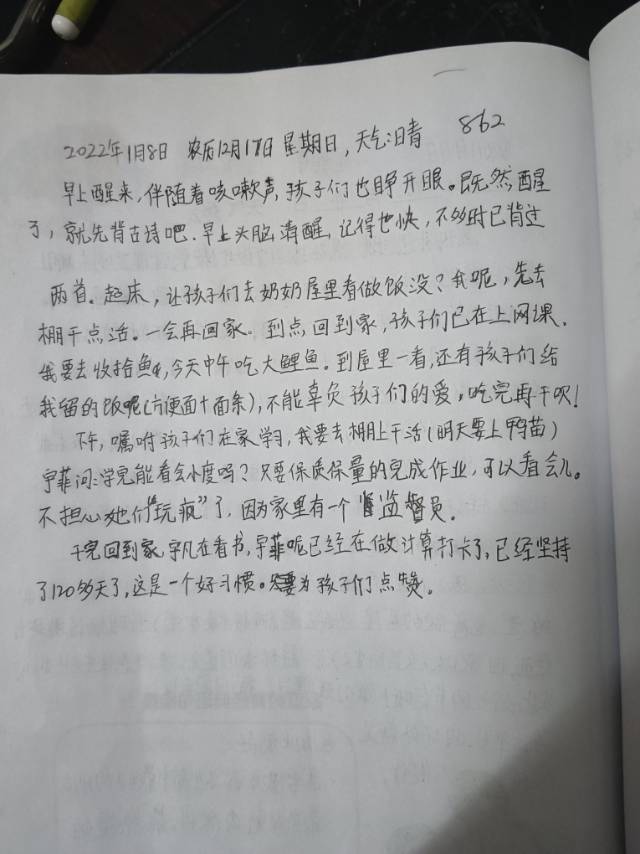 862
2022年1月8日 农历12月17日 星期日，天气：晴
早上醒来，伴随着咳嗽声，孩子们也睁开眼。既然醒
了，就先背古诗吧．早上头脑清醒，记得也快，不多时已背过
两首．起床，让孩子们去奶奶屋里看做饭没？我呢，先去
棚干点活．一会再回家．到点回到家，孩子们已在上网课．
我要去收拾鱼，今天中午吃大鲤鱼．到屋里一看，还有孩子们给
我留的饭呢（方便面十面条），不能辜负孩子们的爱，吃完再干呗！
下午，嘱咐孩子们在家学习，我要去棚上干活（明天要上鸭苗）
宇菲问：学完能看会小度吗？只要保质保量的完成作业，可以看会儿。
不担心她们“玩疯”了，因为家里有一个监督员．
干完回到家，宇凡在看书，宇菲呢已经在做计算打卡了，已经坚持
了120多天了，这是一个好习惯。要为孩子们点赞。